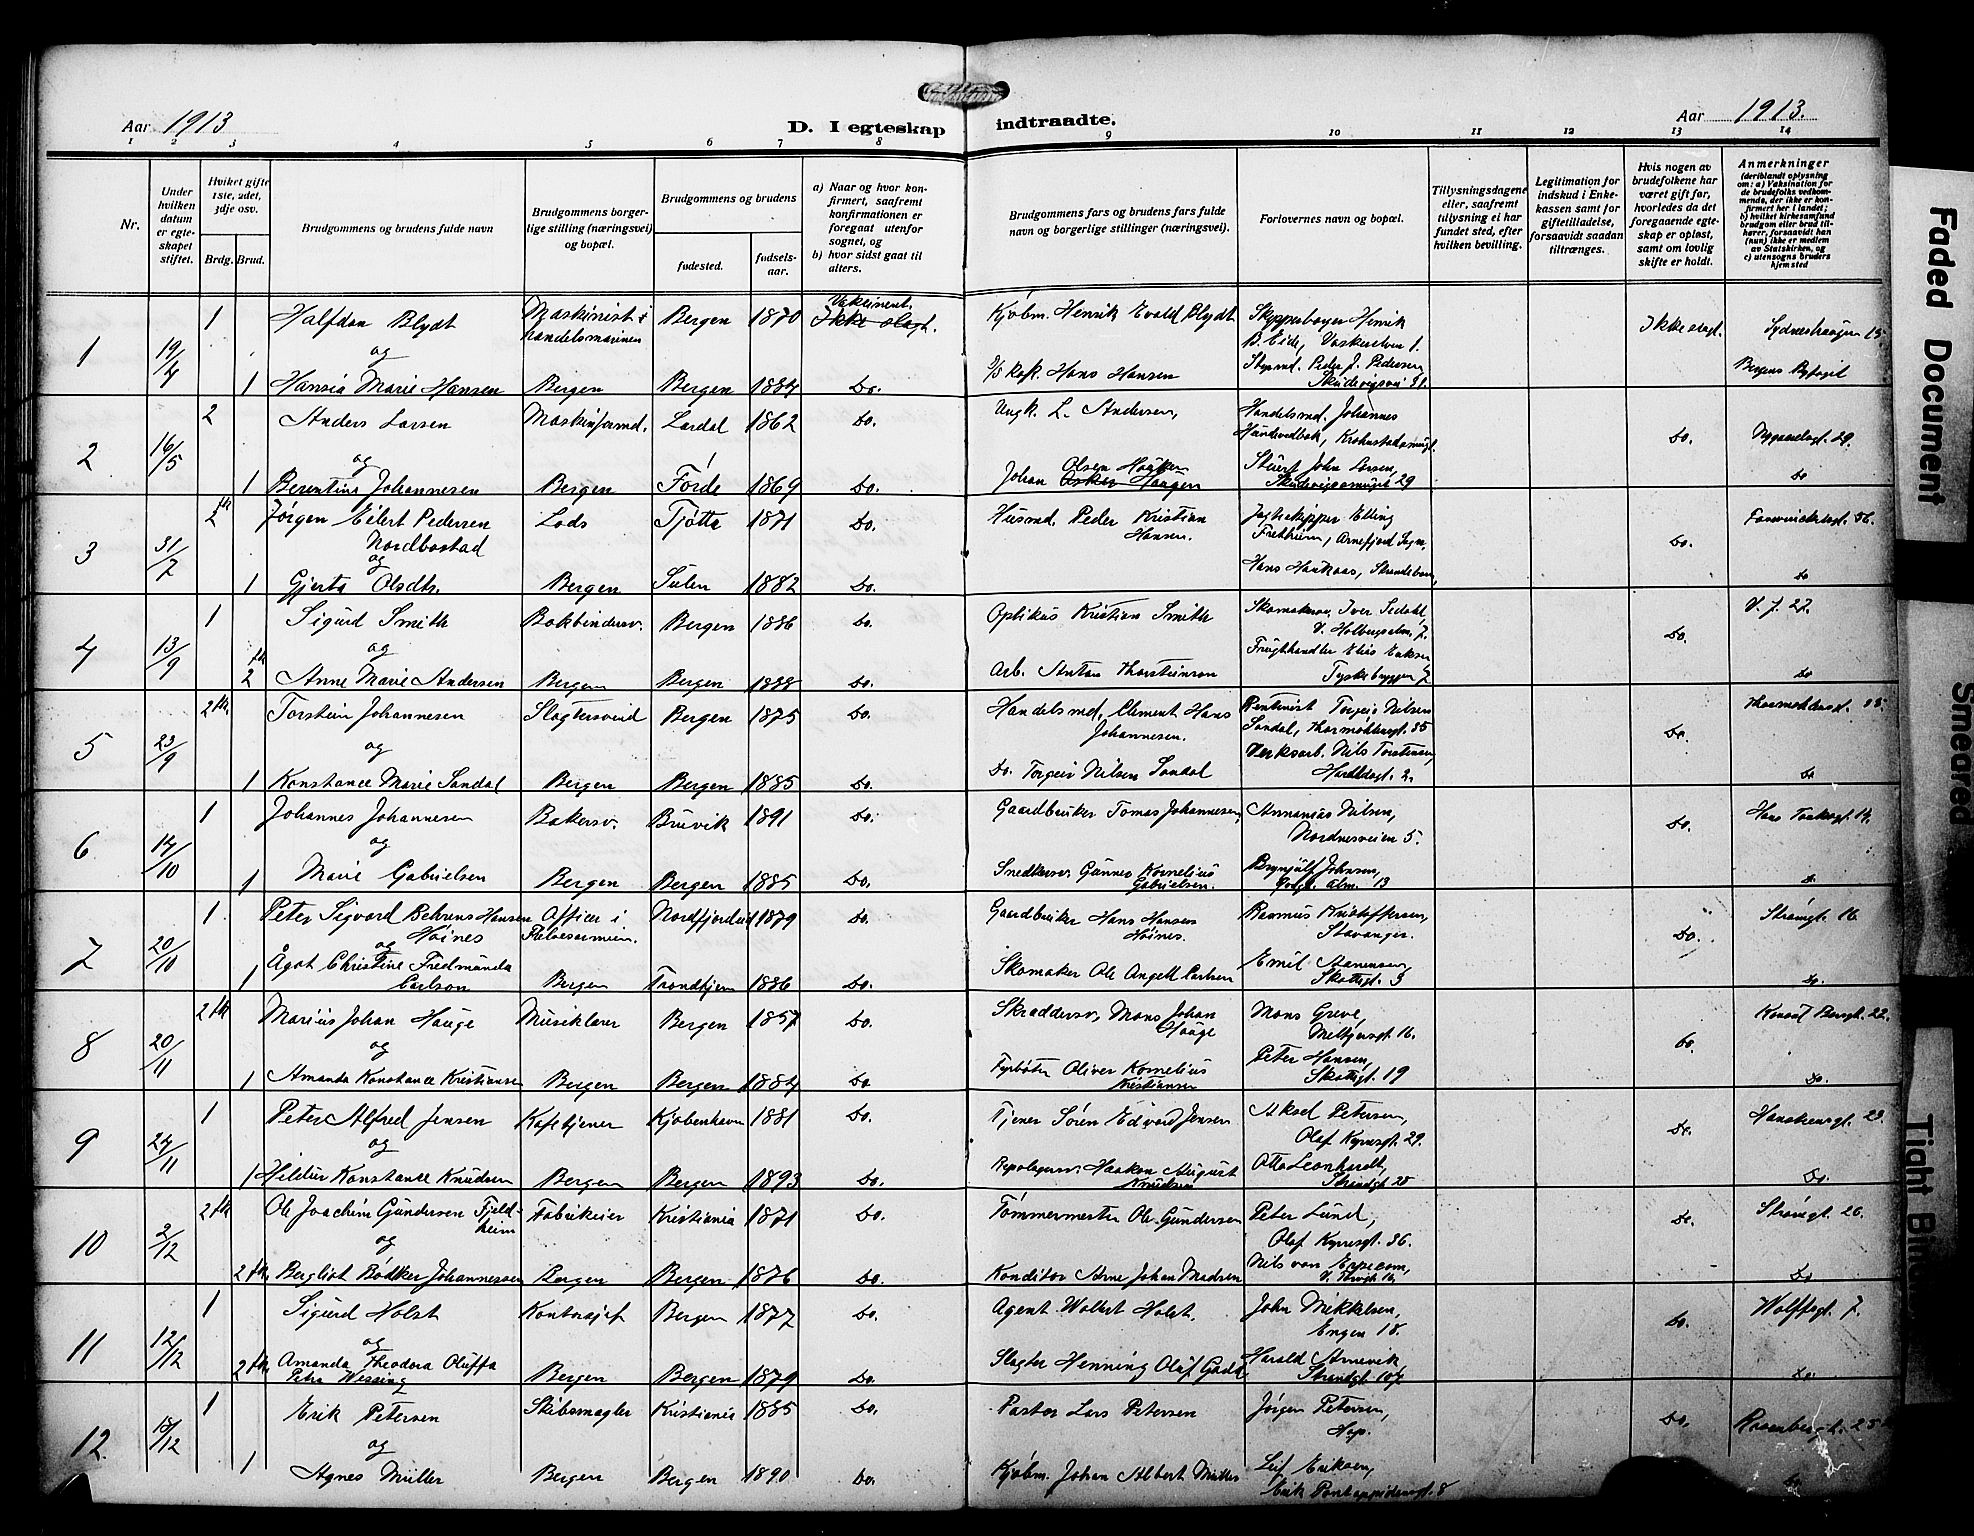 Aar 1913
D. I egteskap indtraadte.
Aar 1913.
1 2 3 4 5 6 7 8 9 10 11 12 13 14
Nr.
Under hvilken datum er egteskapet stiftet.
Hviket gifte 1ste, 2det, 3dje osv.
Brdg. Brud.
Brudgommens og brudens fulde navn
Brudgommens borgerlige stilling (næringsvei) og bopæl.
Brudgommens og brudens
fødested.
fødselsaar.
a) Naar og hvor konfirmert, saafremt konfirmationen er foregaat utenfor sognet, og
b) hvor sidst gaat til alters.
Brudgommens fars og brudens fars fulde navn og borgerlige stillinger (næringsvei).
Forlovernes navn og bopæl.
Tillysningsdagene eller, saafremt tillysning ei har fundet sted, efter hvilken bevilling.
Legitimation for indskud i Enkekassen samt for giftetilladelse, forsaavidt saadan tiltrænges.
Hvis nogen av brudefolkene har været gift før, hvorledes da det foregaaende egteskap er opløst, samt om lovlig skifte er holdt.
Anmerkninger
(deriblandt oplysning om: a) Vaksination for de brudefolks vedkommende, der ikke er konfirmert her i landet; b) hvilket kirkesamfund brudgom eller brud tilhører, forsaavidt han (hun) ikke er medlem av Statskirken, og c) utensogns bruders hjemsted
1 19/4 1 Halfdan Blydt Maskinist i handelsmarinen Bergen 1870 Vaksinert. Ikke opgt. Kjøbm. Henrik Evald Blydt Skipperborger Henrik B. Eide, 1. Ikke opgt. Sydneshaugen 15.
og
1 Hansia Marie Hansen Bergen Bergen 1884 Do. D/S kapt. Hans Hansen Styrmd. Peder J. Pedersen Skudevigsvei 31. Bergens Byfogd
2 16/5 2 Anders Larsen Maskinformd. Lardal 1862 Do. Ungk. L. Andersen, Handelsmd. Johannes Do. Nygaardsgt. 29.
og
1 Berentine Johannesen Bergen Førde 1869 Do. Johan Olsen Haugen Stuert John Larsen, 29 Do
3 31/7 2den Jørgen Eilert Pedersen Nordbostad Lods Tjøtta 1871 Do. Husmd. Peder Kristian Hansen. Jagtskipper Elling Fretheim, Arnefjord Sogn, Do. 56.
og
1 Gjerta Olsdtr. Bergen Sulen 1882 Do. Hans Haukaas, Do
4 13/9 1 Sigurd Smith Bokbindersv. Bergen 1886 Do. Optikus Kristian Smith Skomakersv. Iver Sedahl, V. Holbergsalm. 7. Do. V. J. 27.
og
2den Anne Marie Andersen Bergen Bergen 1888 Do. Arb. Anton Thorsteinson Frugthandler Elias Tyskebryggen 7 Do
5 23/9 2den Torstein Johannesen Slagtersvend Bergen 1875 Do. Handelsmd. Clement Hans Johannesen. Rentenist Torgeis Nilsen Sandal, Thormøhlensgt. 85 Do.
og
1 Konstance Marie Sandal Bergen Bergen 1885 Do. Do. Torgeis Nilsen Sandal Verksarb. Nils Torstensen, 2. Do
6 14/10 1 Johannes Johannesen Bakersv. Bruvik 1891 Do. Gaardbruker Tomas Johannesen, Annanias Nilsen, Nordnesveien 5. Do. Hans Tanksgt. 14.
og
1 Marie Gabrielsen Bergen Bergen 1885 Do. Snedkersv. Gunner Kornelius Gabrielsen. Brynjulf Johnsen, alm. 13 Do.
7 20/10 1 Peter Sigvard Behrens Hansen Høines Officer i Frelsesarmeen. Nordfjordeid 1879 Do. Gaardbruker Hans Hansen Høines. Rasmus Kristoffersen, Stavanger. Do. Strandgt. 16.
og
1 Ågot Christine Fredmunda Carlson Bergen Trondhjem 1886 Do. Skomaker Ole Angell Carlsen Emil Skottegt. 5 Do.
8 20/11 2den Marius Johan Hauge Musiklærer Bergen 1857 Do. Skræddersv. Mons Johan Hauge Mons Greve, Meltzersgt. 16. Do. 22.
og
1 Amanda Konstance Kristiansen Bergen Bergen 1884 Do Fyrbøter Oliver Kornelius Kristiansen Peter Hansen, Skottegt. 19 Do.
9 24/11 1 Peter Alfred Jensen Kafetjener Kjøbenhavn 1881 Do. Tjener Søren Edvard Jensen Aksel Petersen, Olaf Kyrresgt. 29. Do. 23.
og
1 Hildur Konstance Knudsen Bergen Bergen 1893 Do. Repslagersv. Haakon August Knudsen Otto Leonhardt, Strandgt. 25 Do.
10 2/12 2den Ole Joachim Gundersen Fjeldheim Fabrikeier Kristiania 1871 Do. Tømmermester Ole Gundersen Peter Lund, Olaf Kyrresgt. 36. Do. Strandgt. 26.
og
2den Bergliot Bødtker Johannessen Bergen Bergen 1876 Do. Konditor Arne Johan Madsen Nils von Erpecom, Do
11 12/12 1 Sigurd Holst Kontorsjef Bergen 1877 Do. Agent Wolert Holst. John Mikkelsen, Engen 18. Do. Wolffsgt. 7.
og
2den Amanda Theodora Oluffa Petra Wessing Bergen Bergen 1879 Do. Slagter Henning Oluf Gade Harald Arnevik, Strandgt. 107. Do.
12. 18/12 1 Erik Petersen Skibsmægler Kristiania 1885 Do. Pastor Lars Petersen Jørgen Petersen, Hop. Do. Rosenbergt. 25
og
1 Agnes Müller Bergen Bergen 1890 Do. Kjøbm. Johan Albert Müller Leif Eriksen, Erik Pontoppidansgt. 8 Do
Faded Document
Smeared
Tight Bin